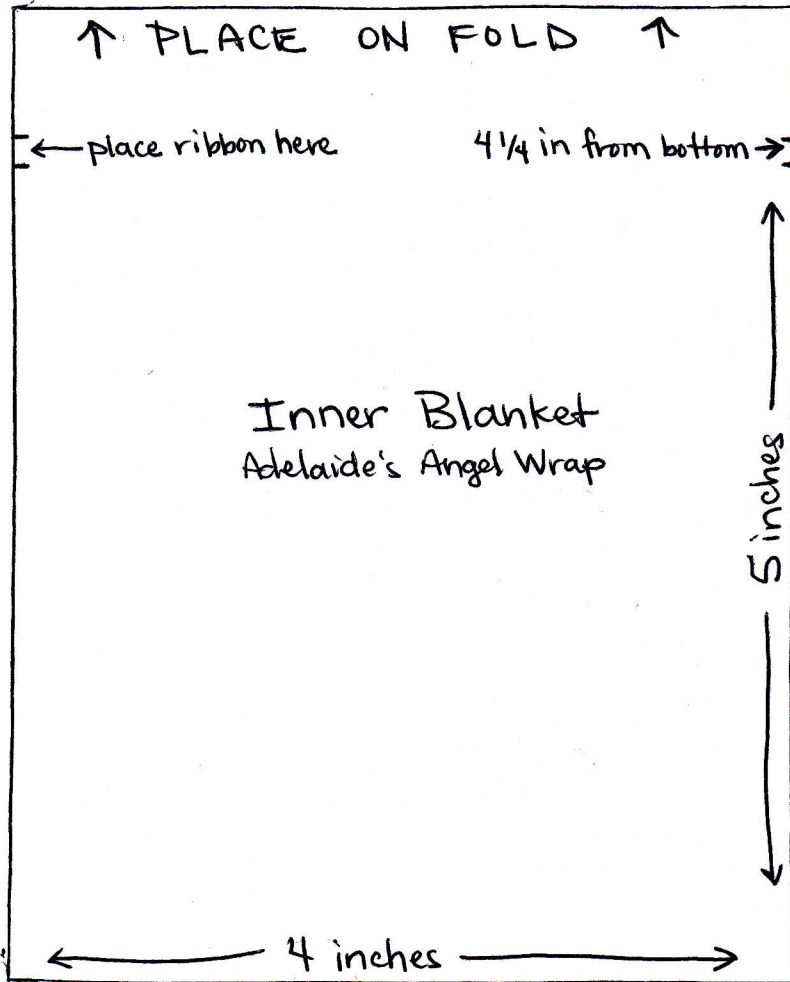 ↑ PLACE ON FOLD ↑
← place ribbon here 4 1/4 in from bottom →
Inner Blanket
Adelaide's Angel Wrap
5 inches
4 inches